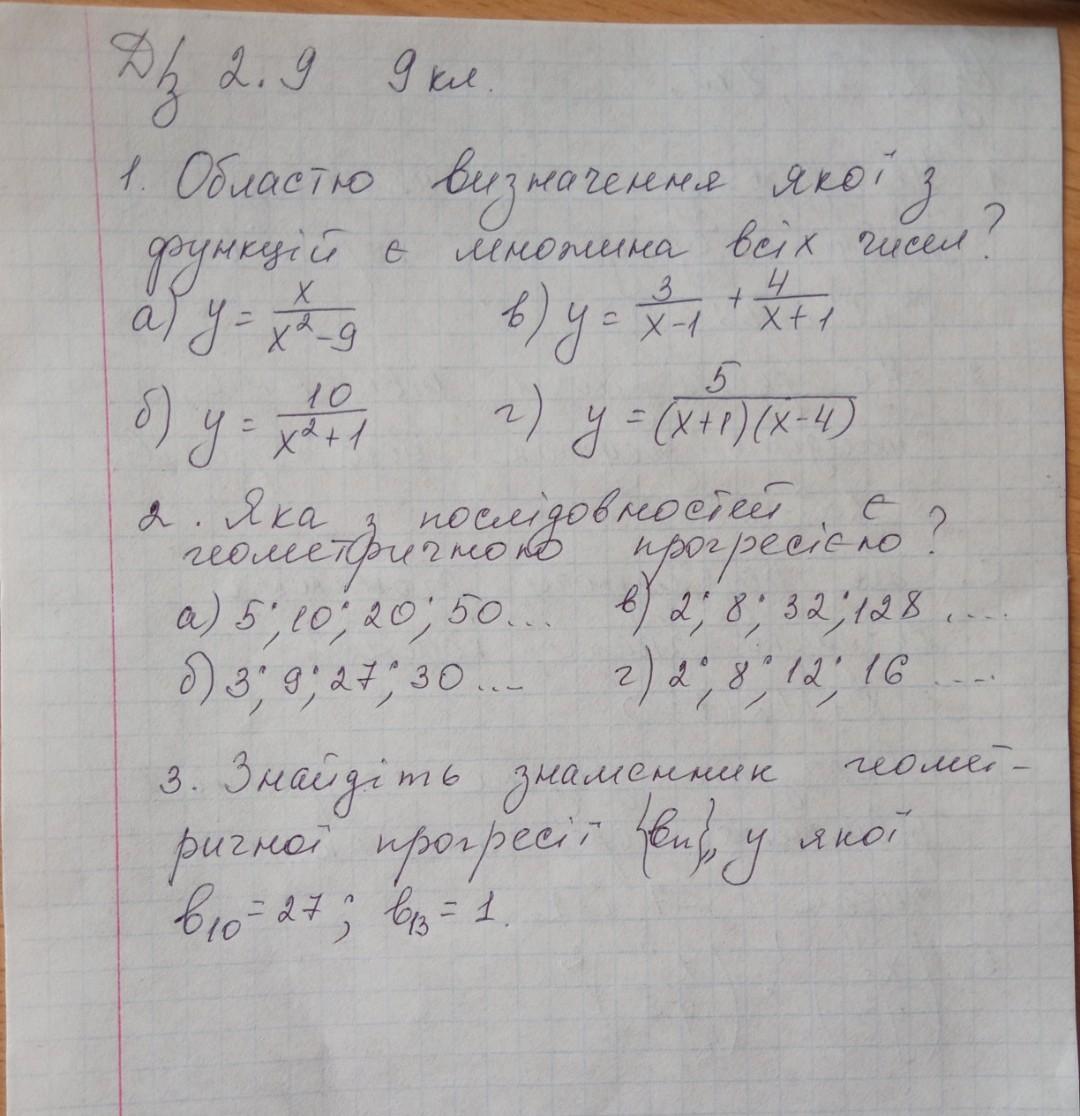 Дз 2.9 9 кл.
1. Областю визначення якої з
функцій є множина всіх чисел?
а) y = x/(x²-9) в) y = 3/(x-1) + 4/(x+1)
б) y = 10/(x²+1) г) y = 5/((x+1)(x-4))
2. Яка з послідовностей є
геометричною прогресією?
а) 5; 10; 20; 50... в) 2; 8; 32; 128 ....
б) 3; 9; 27; 30 .... г) 2; 8; 12; 16 ....
3. Знайдіть знаменник геомет-
ричної прогресії {bn}, у якої
b₁₀ = 27; b₁₃ = 1.